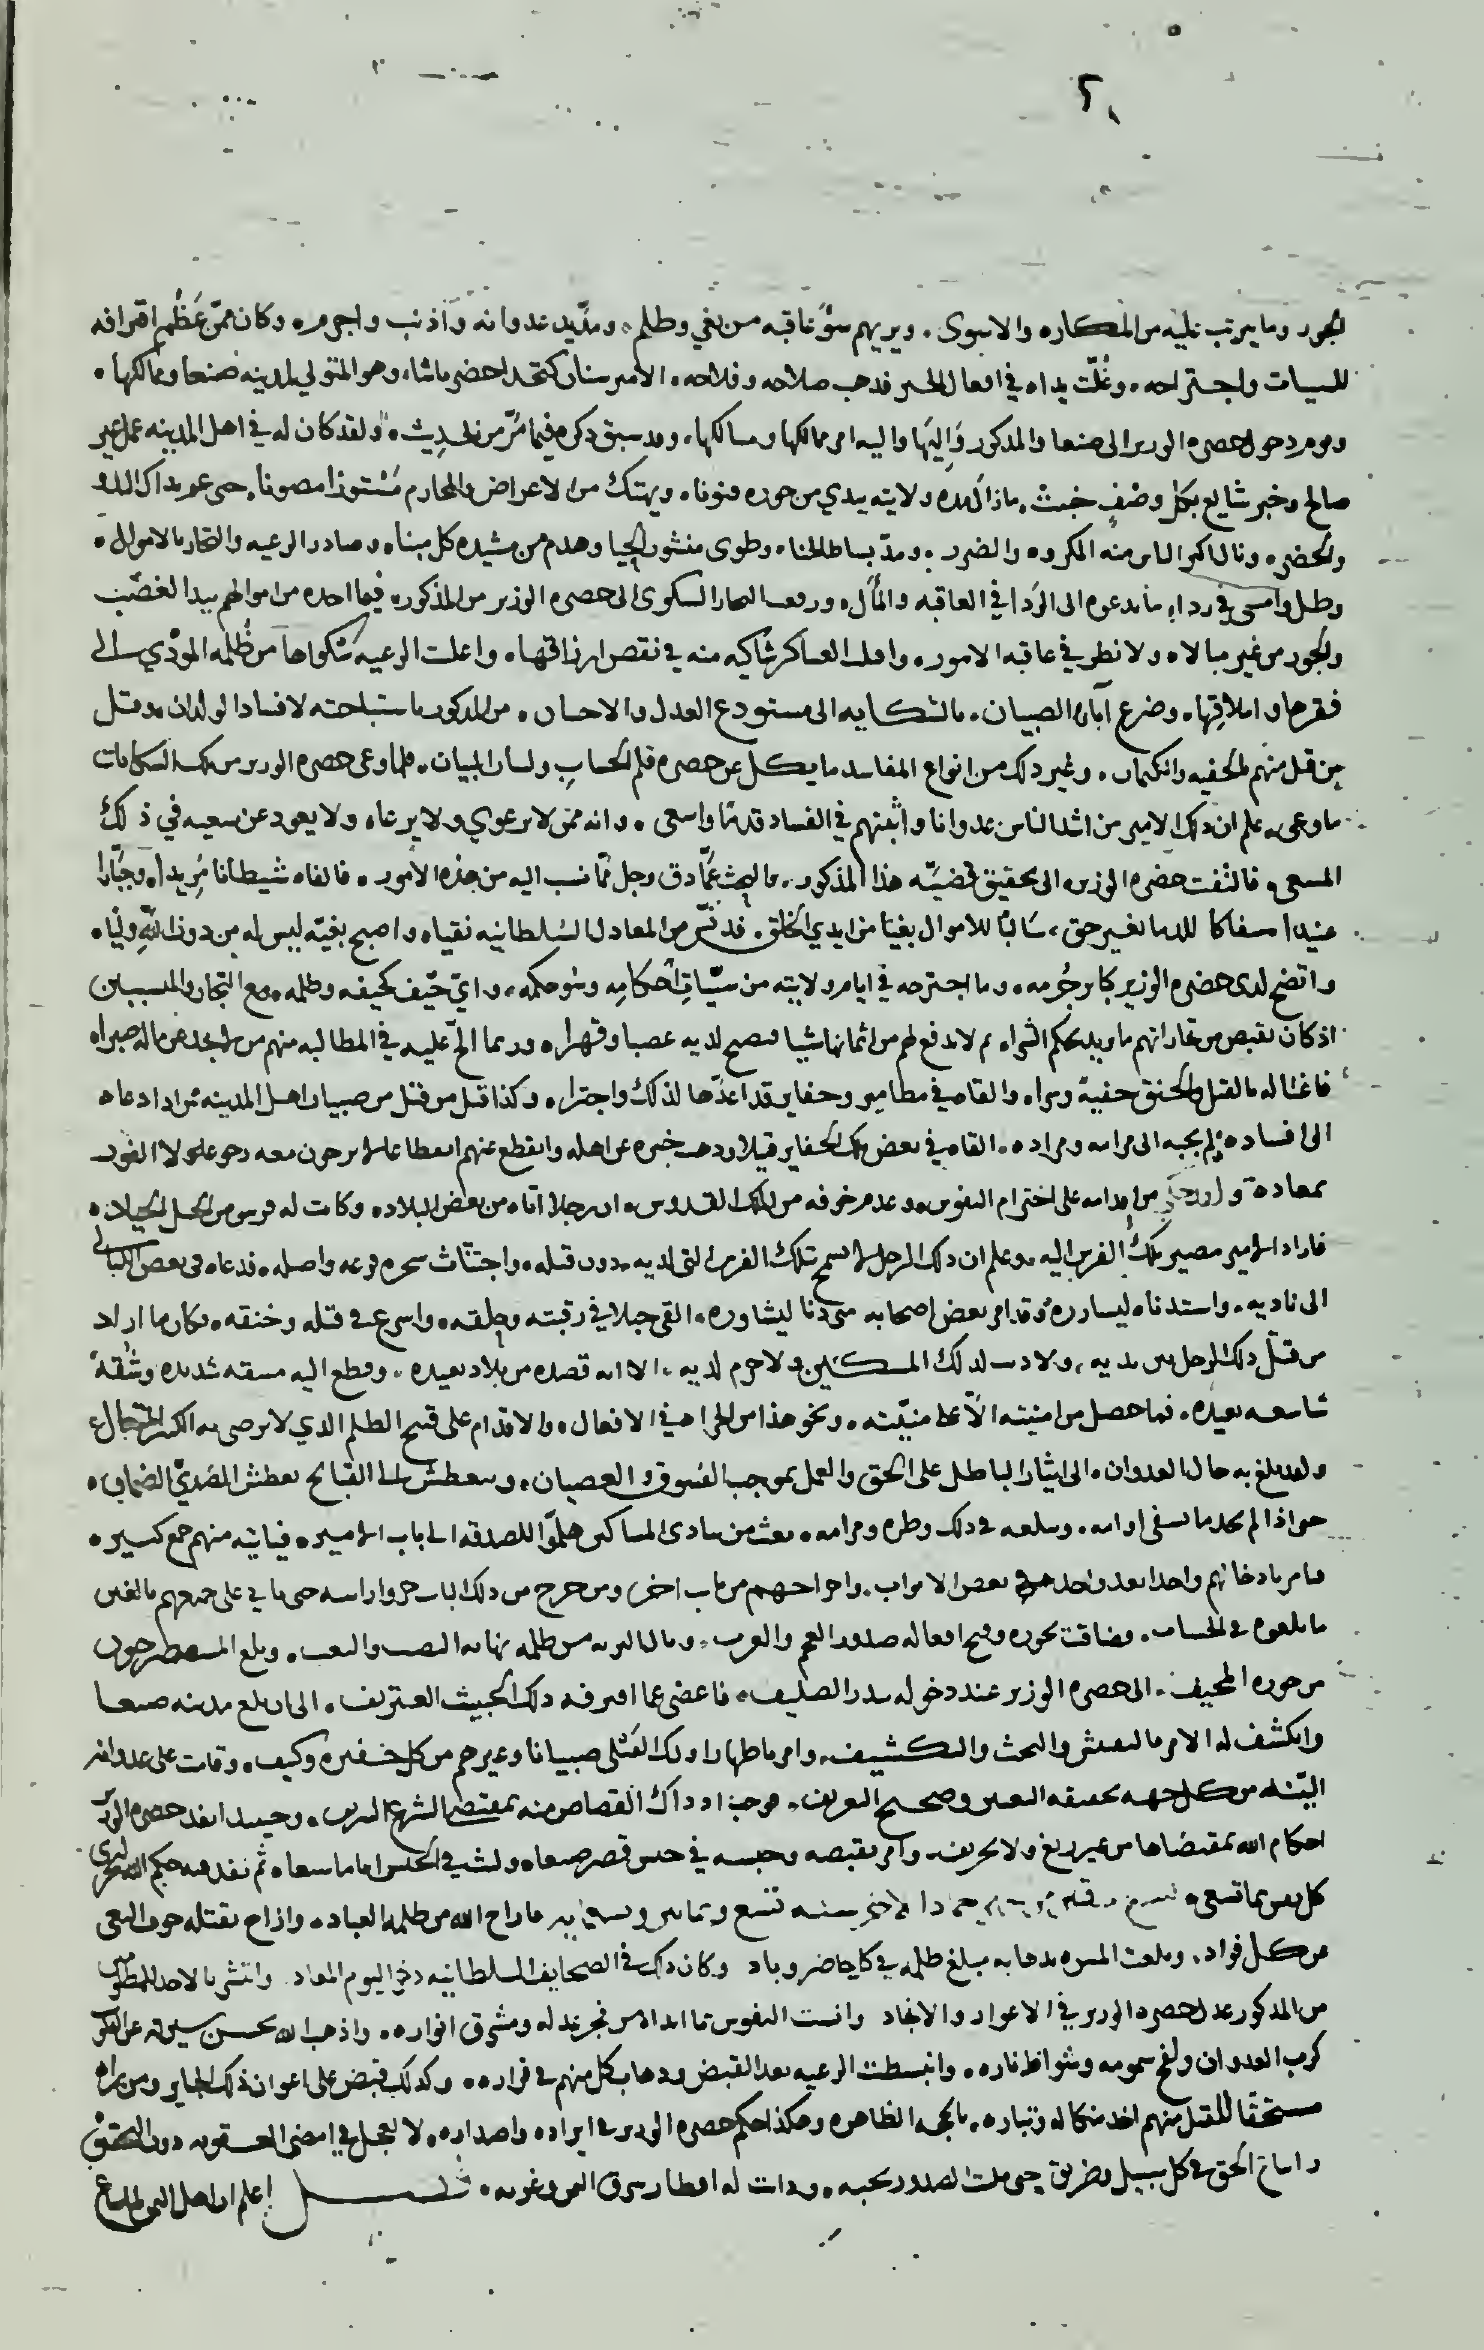 ٢١
الجور وما يترتب عليه من المكاره والاسوى . ويريهم سوٴ عاقبه من بغي وظلم ، ومدّ يد عدوانه وأذنب واجرم . وكان ممّن عَظُم اقترافه
للسيات واجتراحه . وغُلّت يداه في افعال الخير فذهب صلاحه وفلاحه . الامير سنان كتخدا حضر باشا ، وهو المتولي لمدينه صنعا وممالكها .
دخول حضره الوزير الى صنعا والمذكور وَاليهَا واليه امر ممالكها ومسالكها . وقد سبق ذكره فيما مَرّ من الحديث . ولقد كان له في اهل المدينه عمل غير
صالح وخبر شايع بكل وصْفٍ خبيث . ماذاك مده ولايته يبدي من جوره فنونا . ويهتك من الاعراض والمحارم مَسْتورًا مصونا . حتى عم بذاك البدو
والحضر . ونال اكثر الناس منه المكروه والضرر . ومدّ بساط الخنا . وطوى منشور الحيا وهدم من مشيده كل مبنا . وصادر الرعيه والتجار بالاموال .
وظل وامسى في رداء ما يدعوه الى الردا في العاقبه والمأل . ورفعت التجار الشكوى الى حضره الوزير من المذكور . فيما اخذه من اموالهم بيد الغصْب
والجور من غير مبالاه ولا نظر في عاقبه الامور . واقبلت العساكر شاكيه منه في نقص ارزاقها . واعلت الرعيه شكواها من ظُلمه المؤدي الى
فقرها واملاقِها . وضرع آباء الصبيان . بالشكايه الى مستودع العدل والاحسان . من المذكور باستباحته لافساد الولدان وقتل
من قتل منهم بالخفيه والكتمان . وغير ذلك من انواع المفاسد ما يكل عن حصره قلم الحسابِ ولسان البيان . فلما وعى حضره الوزير من تلك الشكايات
ما وعى . علم ان ذلك الامير من اشد الناس عدوانا واثبتهم في الفساد قدمًا واسعى . وانه ممن لا يرعوي ولا يرعاه ولا يعود عن سعيه في ذلك
المسعى . فالتفت حضره الوزير الى تحقيق قضيّه هذا المذكور . بالبحث عمّا دق وجل مما نسب اليه من هذه الامور . فالفاه شيطانا مَرِيدا . وجبّارا
عنيدا . سفاكا للدما بغير حق ، سَالبًا للاموال بغيًا من ايدي الخلق . من المعادل السّلطانيه نقيا . واصبح بغيّه ليس له من دون اللّه وليًا .
واتضح لدى حضره الوزير كاير جُرمه . وما اجترحه في ايام ولايته من سيّات احكامِه وسوٴ حكمه . واي حَيْف كحيفه وظلمه . مع التجار والمتسببين
اذ كان يقبض من تجاراتهم ما يريد بحكم الشراء . ثم لا يدفع لهم من اثمانها شيا فيصبح لديه غصبا وقهرا . وربما الحّ عليه في المطالبه منهم من لم يجد عن ماله صبرا .
فاغتاله بالقتل والخنق خفيةً وسرا . والقاه في مطامير وحفاير قد اعدّها لذلك واجترا . وكذا قتل من قتل من صبيان اهل المدينه ممن ارادادعاه
الى افساده فلم يجبه الى مرامه ومراده . القاه في بعض تلك الحفاير قتيلا وذهب خبره عن اهله وانقطع عنهم انقطاعا لا يرجون معه رجوعا ولا الفوز
بمعاده . من اقدامه على اخترام النفوس . وعدم خوفه من الملك القدوس . ان رجلا اتاه من بعض البلاد . وكانت له فرس من الخيل الجياد .
فاراد الامير مصير تلك الفرس اليه . وعلم ان ذلك الرجل لا يسمح بتلك الفرس التي لديه . دون قتله . واجتثاث شجره فرعه واصله . فدعاه في بعض الليالي
الى ناديه . واستدناه ليسارره وقد امر بعض اصحابه متى دنا ليشاوره . القى حبلا في رقبته وحلقه . واسرع في قتله وخنقه . فكان ما اراد
من قتل ذلك الرجل بين يديه ، ولا ذنب لذلك المسكين ولا جرم لديه . الا انه قصده من بلاد بعيده . وقطع اليه مشقه شديده وشُقّةً
شاسعه بعيده . فما حصل من امنيته الا على منيّته . ونحو هذا من الجراه في الافعال . والاقدام على قبيح الظلم الذي لا يرضى به الكبير المتعال .
ولقد بلغ به حال العدوان . الى ايثار الباطل على الحق والعمل بموجب الفسوق والعصيان . ويتعطش الى القبايح تعطش الصَدِيّ الظمآن .
حو اذا لم يجد ما يشفي اوامه . ويبلغه في ذلك وطره ومرامه . بعث من ينادي المساكين هلمّوا للصدقه الى باب الامير . فياتيه منهم جمع كبير .
فيامر بادخالهم واحدا بعد واحد من بعض الابواب . واخراجهم من باب اخر ، ومن خرج من ذلك الباب حزوا راسه حتى ياتي على جميعهم بالغين
ما بلغوه في الحساب . وضاقت بجوره وقبح افعاله صدور العجم والعرب . ونال البريه من ظلمه نهايه النصب والتعب . وبلغ المتضجرون
من جوره المحيف . الى حضره الوزير عند دخوله بندر الصليف . فاغضى عما اقترفه ذلك الخبيث العتريف . الى ان بلغ مدينه صنعا
وانكشف له الامر بالتفتيش والبحث والتكشيف . وامر باظهار اولئك القتلى صبيانا وغيرهم من كل حفيره وكنيف . وقامت على عدوانه
البيّنه من كل جهه بحقيقه التعيين وصحيح التعريف . فوجب اذ ذاك القصاص منه بمقتضى الشرع الشريف . وحينيذ انفذ حضره الوزير
احكام الله بمقتضاها من غير زيغ ولا تحريف . وامر بقبضه وحبسه في حبس قصر صنعا . ولبث في الحبس اياما سعا . ثم نفذ فيه حكم الله
كل نفس بما تسعى . جمادا الاخرى سنه تسع وثمانين وتسعمايه فاراح الله من ظلمه العباد . وازاح بقتله خوف البغي
عن كل فواد . وبلغت المسره بذهابه مبلغ ظلمه في كل حاضر وباد وكان ذلك في الصحايف السلطانيه ذخر اليوم المعاد وانتشر بالاخذ للمظلوم
من المذكور عدل حضره الوزير في الاغوار والانجاد وانست النفوس بما ابداه من فجر عدله ومشرق انواره . واذهب الله بحسن سيرته عن
كرب العدوان ولفح سمومه وشواظ ناره . وانبسطت الرعيه بعد القبض وذهاب كل منهم في قراره . وكذلك قبض على اعوان ذلك الجاير ومن يراه
مستحقًا للقتل منهم اخذ منكاله وتباره . بالحجه الظاهره وهكذا حكم حضره الوزير في ايراده واصداره . لا يعجل في امضى العقوبه دون التحقيق
واتباع الحق في كل سبيل وطريق حتى ملت الصدور بحبه . ودانت له اقطار شرق اليمن وغربه . فصل إعلم ان اهل اليمن